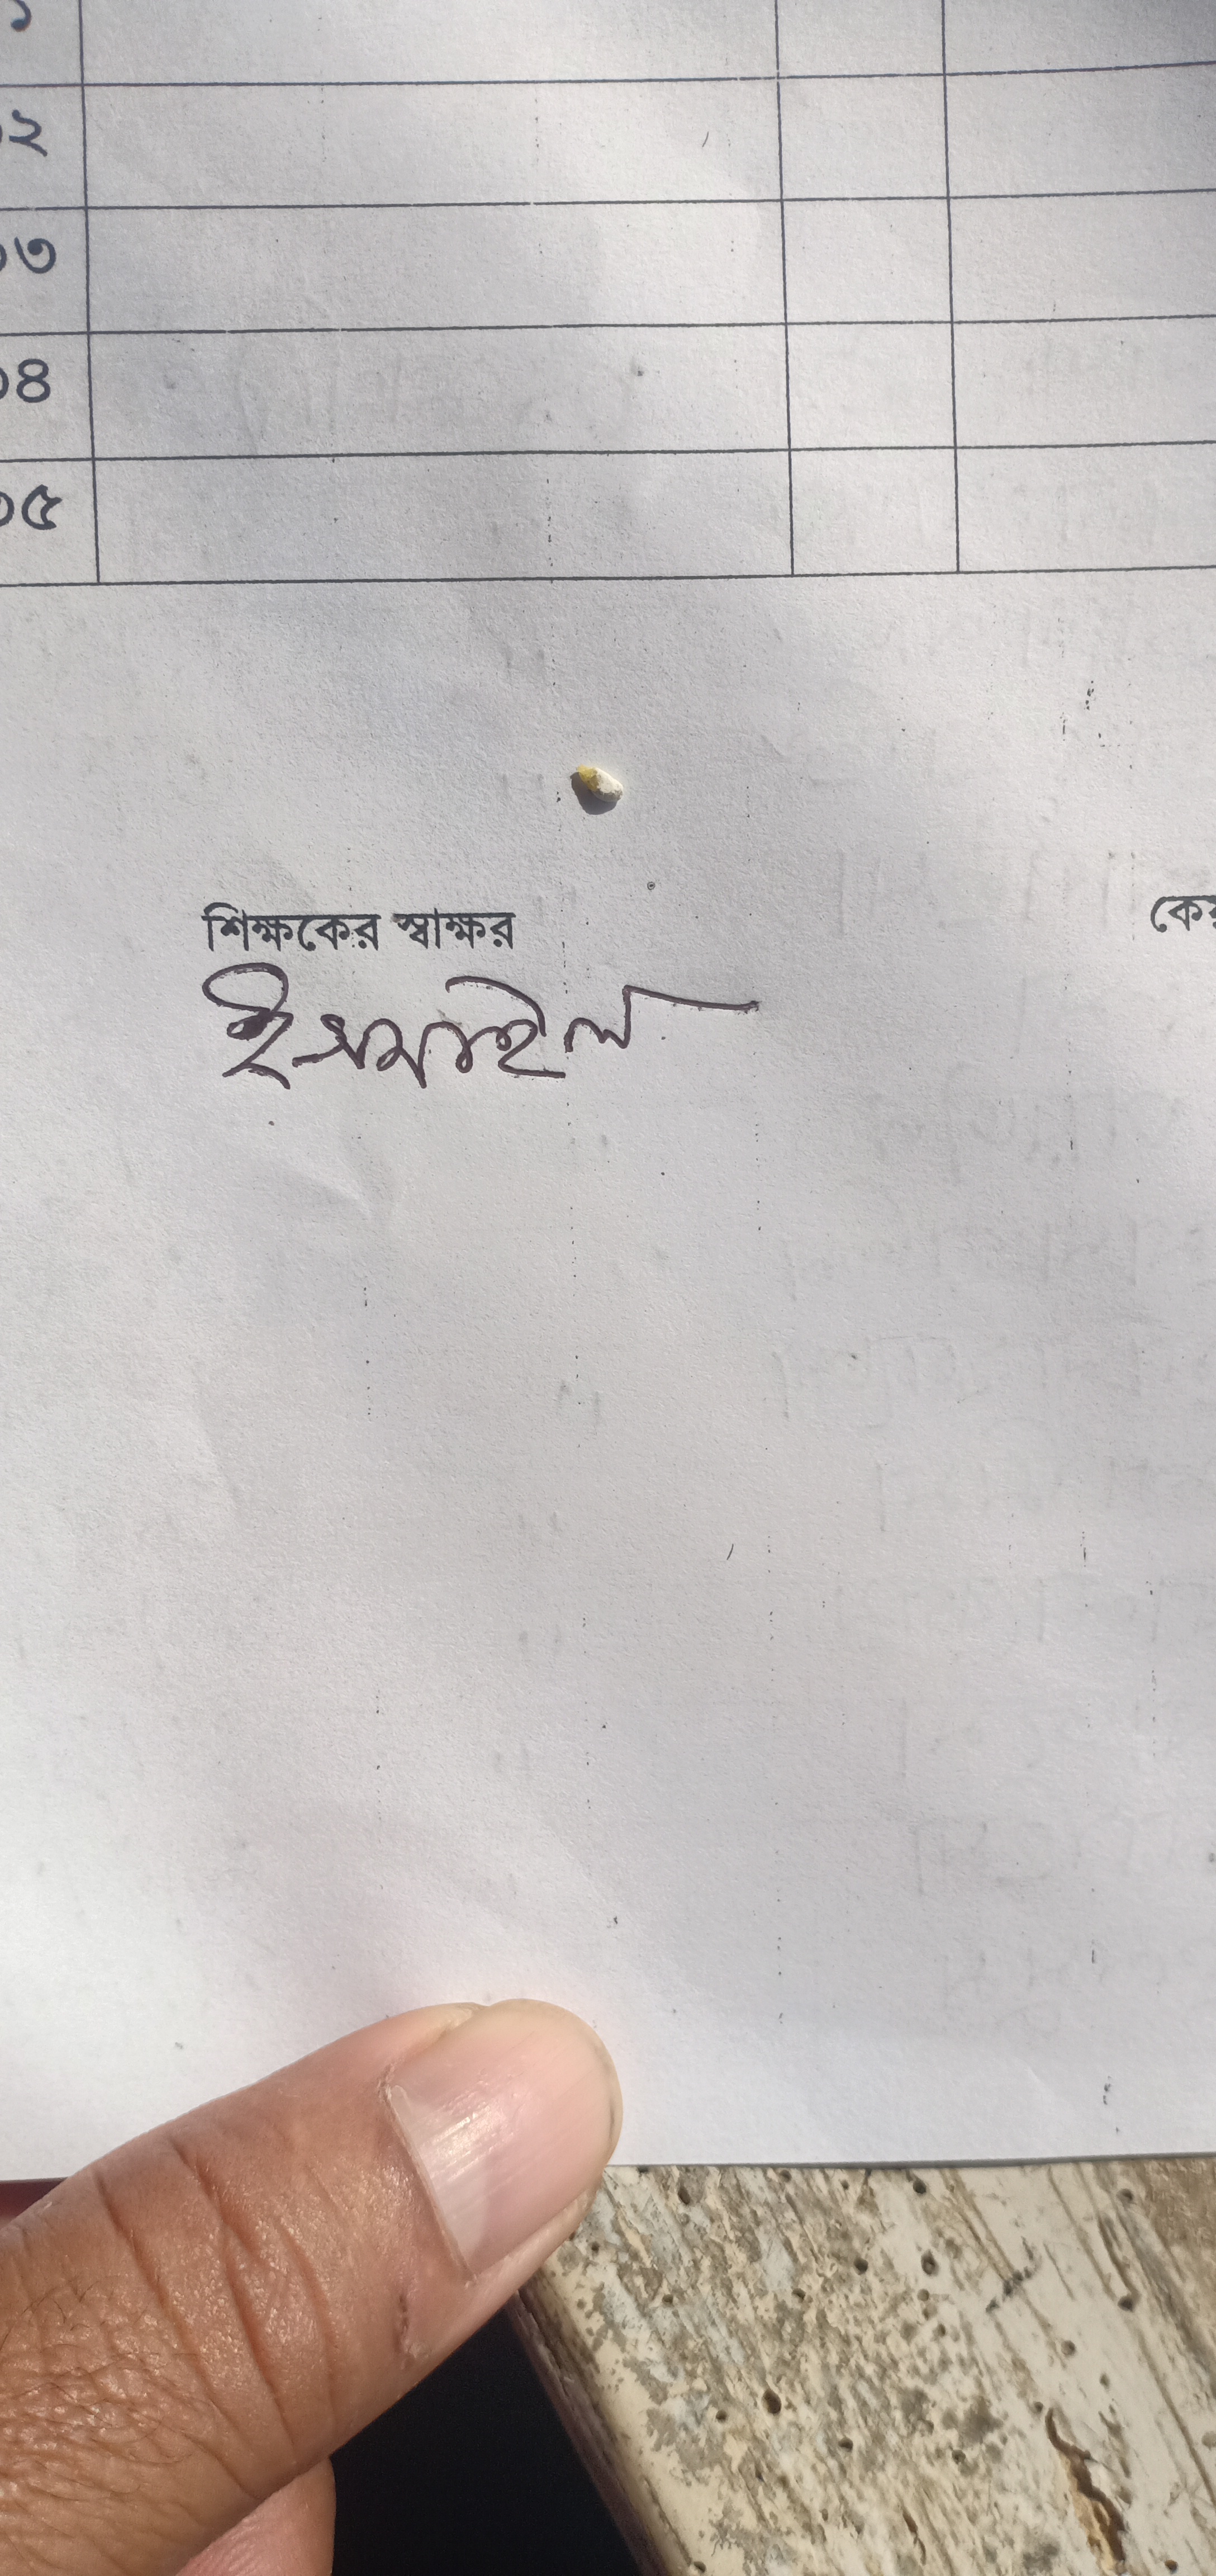 ২
৩
৪
৫
শিক্ষকের স্বাক্ষর
ইসমাইল